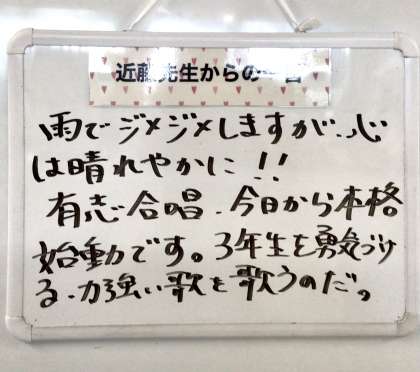 近藤先生からの一言
雨でジメジメしますが、心
は晴れやかに!!
有志合唱、今日から本格
始動です。3年生を勇気づけ
る、力強い歌を歌うのだっ